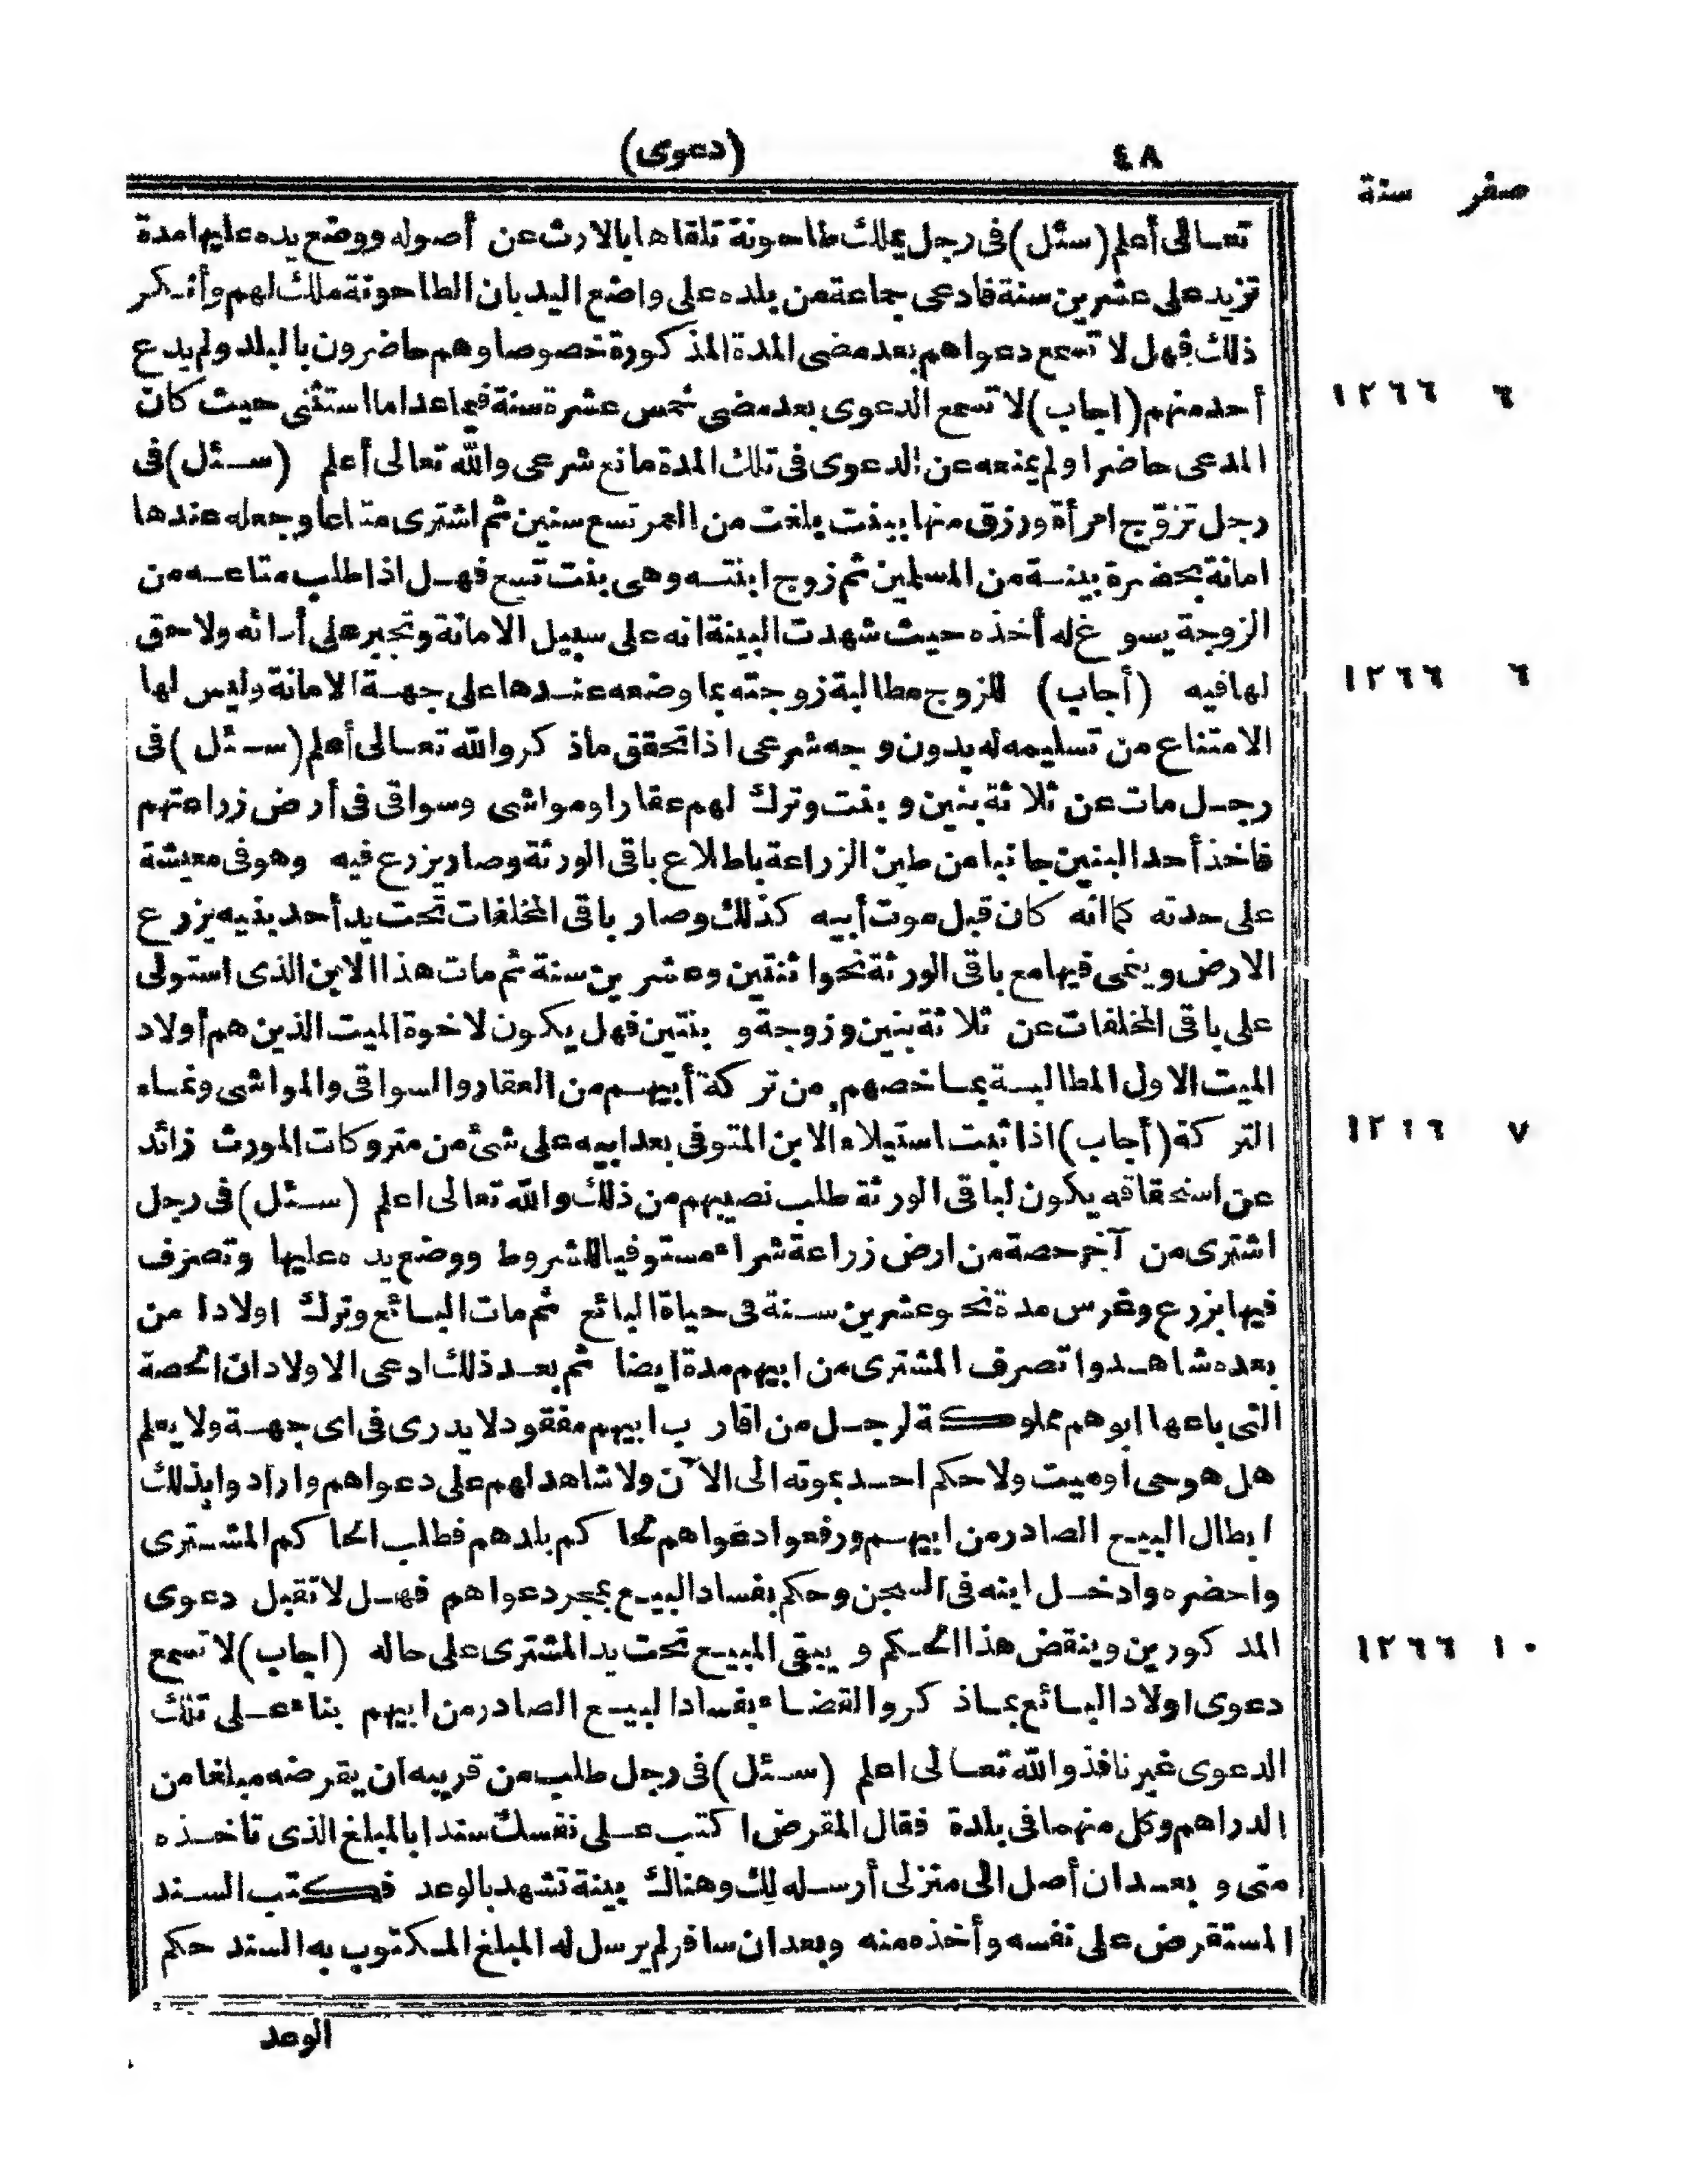 ٤٨ (دعوى)
صفر سنة
تعالى أعلم (سئل) فى رجل يملك طاحونة تلقاها بالارث عن أصوله ووضع يده عليها مدة
تزيد على عشرين سنة فادعى جماعة من بلده على واضع اليد بان الطاحونة ملك لهم وأنكر
ذلك فهل لا تسمع دعواهم بعد مضى المدة المذكورة خصوصا وهم حاضرون بالبلد ولم يدع
أحد منهم (اجاب) لا تسمع الدعوى بعد مضى خمس عشرة سنة فيما عدا ما استثنى حيث كان ٦ ١٢٦٦
المدعى حاضرا ولم يمنعه عن الدعوى فى تلك المدة مانع شرعى والله تعالى أعلم (سئل) فى
رجل تزوّج امرأة ورزق منها ببنت بلغت من العمر تسع سنين ثم اشترى متاعا وجعله عندها
امانة بحضرة بينة من المسلمين ثم زوج ابنته وهى بنت تسع فهل اذا طلب متاعه من
الزوجة يسوغ له أخذه حيث شهدت البينة انه على سبيل الامانة وتجبر على أدائه ولا حق
لها فيه (أجاب) للزوج مطالبة زوجته بما وضعه عندها على جهة الامانة وليس لها ٦ ١٢٦٦
الامتناع من تسليمه له بدون وجه شرعى اذا تحقق ما ذكر والله تعالى أعلم (سئل) فى
رجل مات عن ثلاثة بنين وبنت وترك لهم عقارا ومواشى وسواقى فى أرض زراعتهم
فاخذ أحد البنين جانبا من طين الزراعة باطلاع باقى الورثة وصار يزرع فيه وهو فى معيشة
على حدته كما انه كان قبل موت أبيه كذلك وصار باقى المخلفات تحت يد أحد بنيه يزرع
الارض وينمى فيها مع باقى الورثة نحوا ثنتين وعشرين سنة ثم مات هذا الابن الذى استولى
على باقى المخلفات عن ثلاثة بنين وزوجة وبنتين فهل يكون لاخوة الميت الذين هم أولاد
الميت الاول المطالبة بما خصهم من تركة أبيهم من العقار والسواقى والمواشى ونماء
التركة (أجاب) اذا ثبت استيلاء الابن المتوفى بعد ابيه على شئ من متروكات المورث زائد ٧ ١٢٦٦
عن استحقاقه يكون لباقى الورثة طلب نصيبهم من ذلك والله تعالى اعلم (سئل) فى رجل
اشترى من آخر حصة من ارض زراعة شراء مستوفيا للشروط ووضع يده عليها وتصرف
فيها بزرع وغرس مدة نحو عشرين سنة فى حياة البائع ثم مات البائع وترك اولادا من
بعده شاهدوا تصرف المشترى من ابيهم مدة ايضا ثم بعد ذلك ادعى الاولاد ان الحصة
التى باعها ابوهم مملوكة لرجل من اقارب ابيهم مفقود لا يدرى فى اى جهة ولا يعلم
هل هو حى او ميت ولا حكم احد بموته الى الآن ولا شاهد لهم على دعواهم وارادوا بذلك
ابطال البيع الصادر من ابيهم ورفعوا دعواهم لحاكم بلدهم فطلب الحاكم المشترى
واحضره وادخل ابنه فى السجن وحكم بفساد البيع بمجرد دعواهم فهل لا تقبل دعوى
المذكورين وينقض هذا الحكم ويبقى المبيع تحت يد المشترى على حاله (اجاب) لا تسمع ١٠ ١٢٦٦
دعوى اولاد البائع بما ذكر والقضاء بفساد البيع الصادر من ابيهم بناء على تلك
الدعوى غير نافذ والله تعالى اعلم (سئل) فى رجل طلب من قريبه ان يقرضه مبلغا من
الدراهم وكل منهما فى بلدة فقال المقرض اكتب على نفسك سندا بالمبلغ الذى تاخذه
متى وبعد ان أصل الى منزلى أرسله لك وهناك بينة تشهد بالوعد فكتب السند
المستقرض على نفسه وأخذه منه وبعد ان سافر لم يرسل له المبلغ المكتوب به السند حكم
الوعد